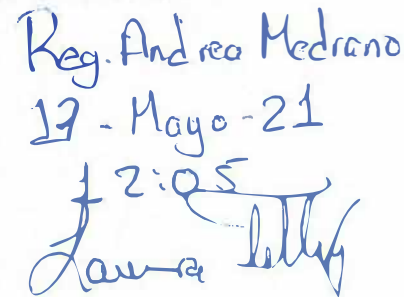 Reg. Andrea Medrano
17 - Mayo - 21
12:05
Laura